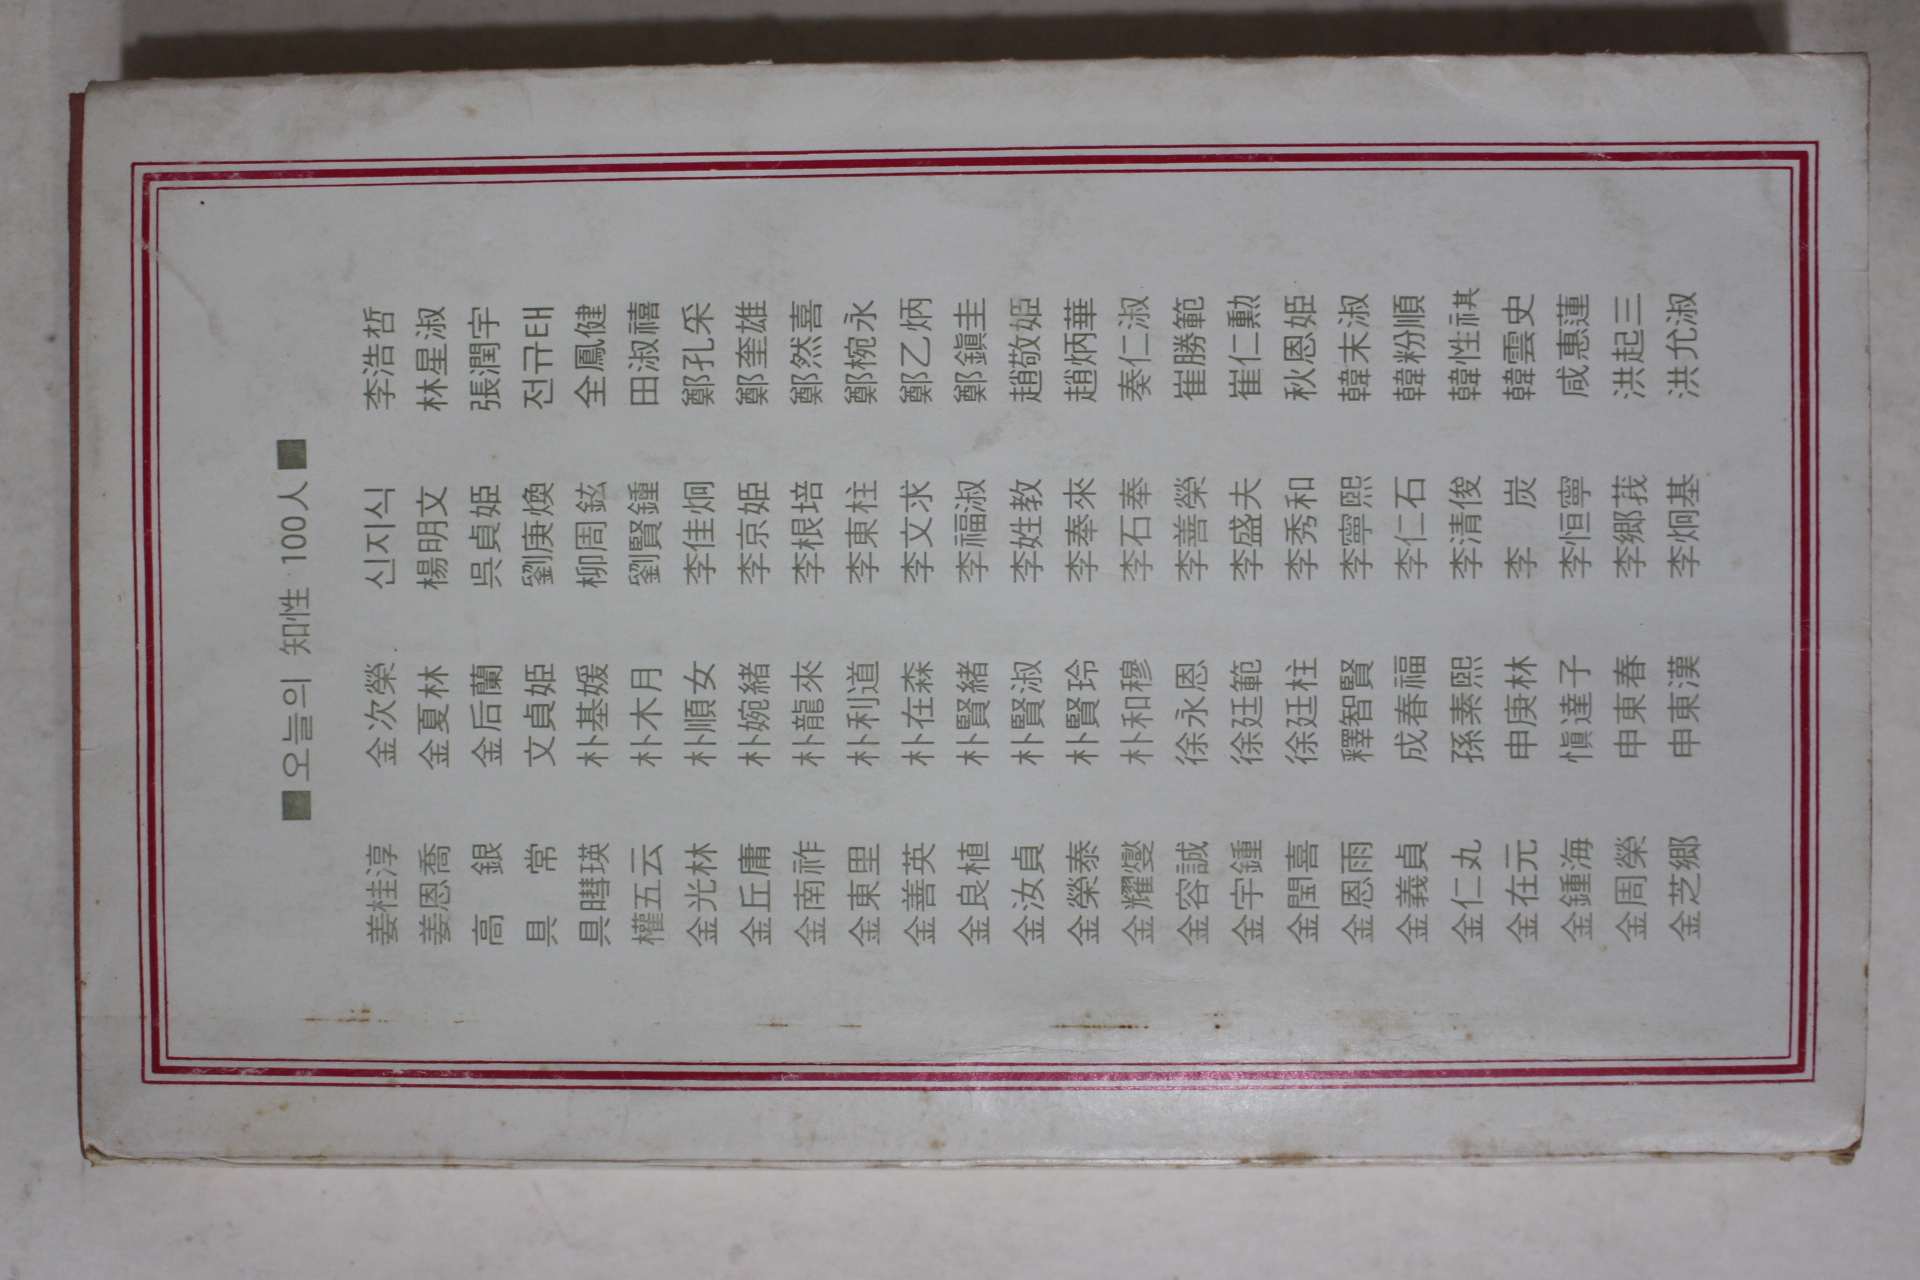 ■ 오늘의 知性 100人 ■
姜桂淳 金次榮 신지식 李浩哲
姜恩喬 金夏林 楊明文 林星淑
高 銀 金后蘭 吳貞姬 張潤宇
具 常 文貞姬 劉庚煥 전규태
具暳瑛 朴基媛 柳周鉉 全鳳健
權五云 朴木月 劉賢鍾 田淑禧
金光林 朴順女 李佳炯 鄭孔采
金丘庸 朴婉緖 李京姬 鄭奎雄
金南祚 朴龍來 李根培 鄭然喜
金東里 朴利道 李東柱 鄭椀永
金善英 朴在森 李文求 鄭乙炳
金良植 朴賢緖 李福淑 鄭鎭圭
金汝貞 朴賢淑 李姓教 趙敬姬
金榮泰 朴賢玲 李奉來 趙炳華
金耀燮 朴和穆 李石奉 奏仁淑
金容誠 徐永恩 李善榮 崔勝範
金宇鍾 徐廷範 李盛夫 崔仁勳
金閏喜 徐廷柱 李秀和 秋恩姬
金恩雨 釋智賢 李寧熙 韓末淑
金義貞 成春福 李仁石 韓粉順
金仁丸 孫素熙 李清俊 韓性祺
金在元 申庚林 李 炭 韓雲史
金鍾海 愼達子 李恒寧 咸惠蓮
金周榮 申東春 李郷莪 洪起三
金芝郷 申東漢 李炯基 洪允淑